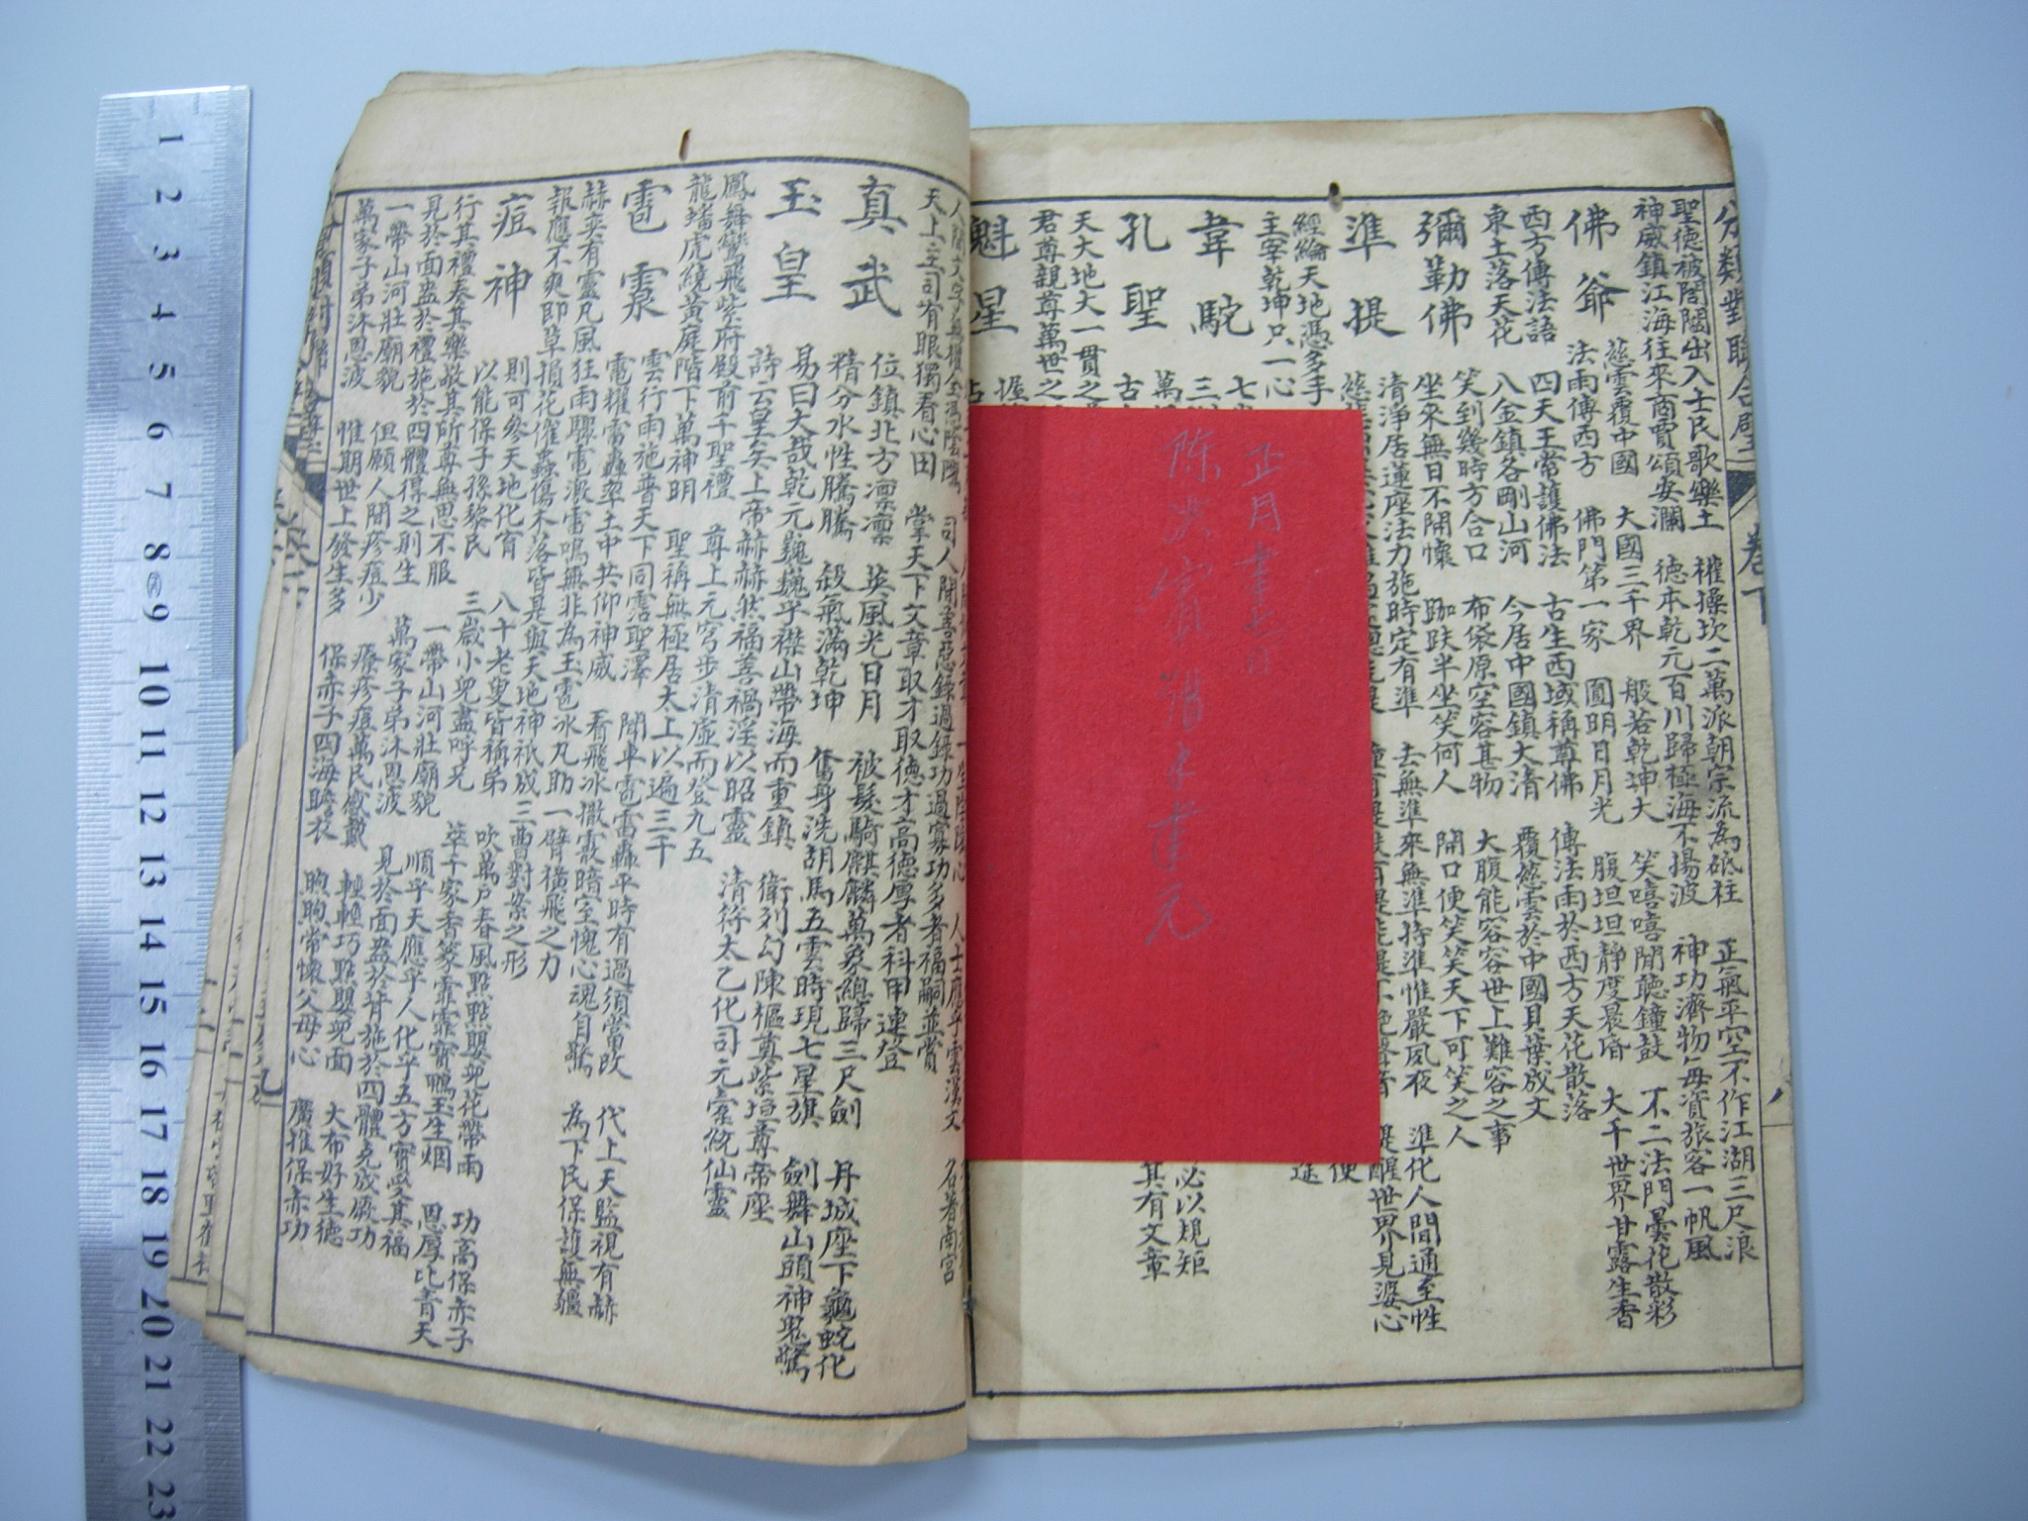 分類對聯合璧
卷下
聖德被閭閻出入士民歌樂土
神威鎮江海往來商賈頌安瀾
權操坎二萬派朝宗流為砥柱
德本乾元百川歸極海不揚波
正氣平空不作江湖三尺浪
神功濟物每資旅客一帆風
佛爺
慈雲覆中國
法雨傳西方
大國三千界
佛門第一家
般若乾坤大
圓明日月光
笑嘻嘻閒聽鐘鼓
腹坦坦靜度晨昏
不二法門曇花散彩
大千世界甘露生香
西方傳法語
東土落天花
四天王常護佛法
八金鎮各剛山河
古生西域稱尊佛
今居中國鎮大清
傳法雨於西方天花散落
覆慈雲於中國貝葉成文
彌勒佛
笑到幾時方合口
坐來無日不開懷
布袋原空容甚物
跏趺半坐笑何人
大腹能容容世上難容之事
開口便笑笑天下可笑之人
準提
清淨居蓮座法力施時定有準
去無準來無準持準惟嚴夙夜
準化人間通至性
提醒世界見婆心
經綸天地憑多手
主宰乾坤只一心
韋駝
孔聖
必以規矩
其有文章
天大地大一貫之
君尊親尊萬世之
魁星
正月書七日
天上主司有眼獨看心田
掌天下文章取才取德才高德厚者科甲連登
司人間善惡錄過錄功過寡功多者福嗣並賞
名著南宮
真武
位鎮北方凜凜
精分水性騰騰
英風光日月
殺氣滿乾坤
被髮騎麒麟萬象總歸三尺劍
奮身洗胡馬五雲時現七星旗
丹城座下龜蛇化
劍舞山頭神鬼驚
玉皇
易曰大哉乾元巍巍乎襟山帶海而重鎮
詩云皇矣上帝赫赫然福善禍淫以昭靈
衛列勾陳樞奠紫垣尊帝座
清符太乙化司元橐統仙靈
鳳舞鸞飛紫府殿前千聖禮
龍蟠虎繞黃庭階下萬神明
尊上元穹步清虛而登九五
聖稱無極居太上以遍三千
雹靈
雲行雨施普天下同霑聖澤
電耀雷轟率土中共仰神威
聞車雹雷轟平時有過須當改
看飛冰撒霰暗室愧心魂自驚
代上天監視有赫
為下民保護無疆
赫奕有靈凡風狂雨驟電激雷鳴無非為玉雹冰丸助一臂橫飛之力
報應不爽即草損花催蟲傷木落皆是與天地神祇成三曹對案之形
痘神
則可參天地化育
以能保子孫黎民
八十老叟皆稱弟
三歲小兒盡呼兄
吹萬戶春風點點嬰兒花帶雨
萃千家香篆霏霏寶鴨玉生烟
功高保赤子
恩厚比青天
行其禮奏其樂敬其所尊無思不服
見於面盎於禮施於四體得之則生
一帶山河壯廟貌
萬家子弟沐恩波
順乎天應乎人化乎五方實受其福
見於面盎於背施於四體克成厥功
一帶山河壯廟貌
萬家子弟沐恩波
但願人間疹痘少
惟期世上發生多
療疹痘萬民感戴
保赤子四海瞻衣
輕輕巧點嬰兒面
煦煦常懷父母心
大布好生德
廣推保赤功
1
2
3
4
5
6
7
8
9
10
11
12
13
14
15
16
17
18
19
20
21
22
23